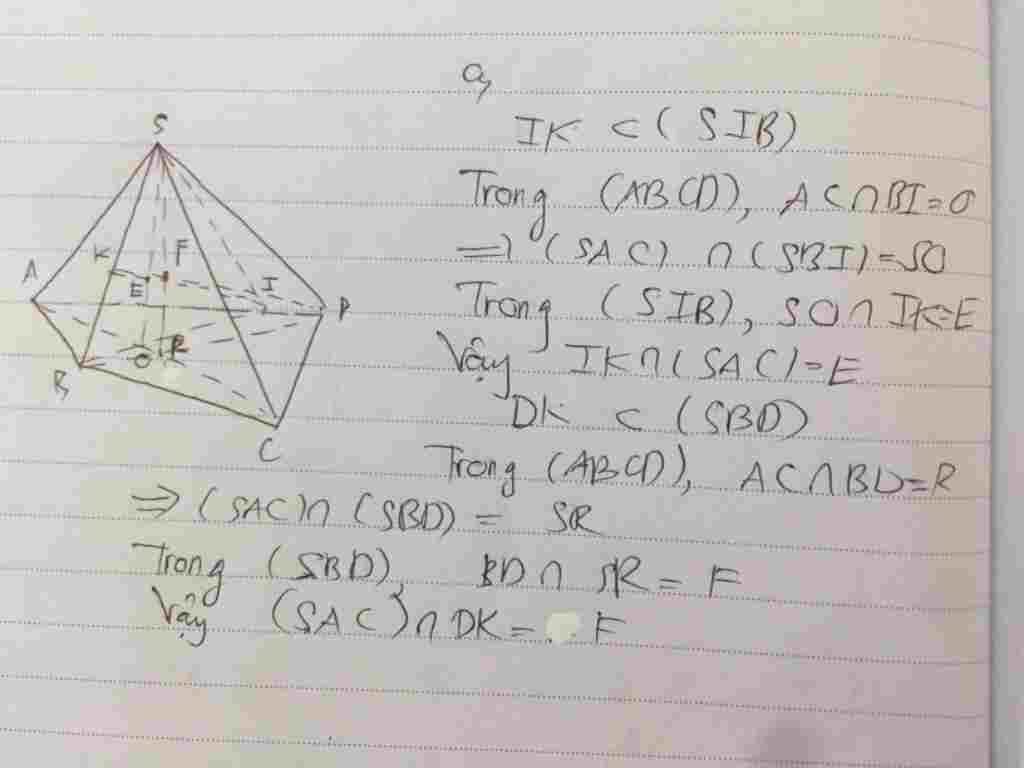 a,
IK ⊂ (SIB)
Trong (ABCD), AC∩BI=O
=) (SAC) ∩ (SBI)=SO
Trong (SIB), SO∩IK=E
Vậy IK∩(SAC)=E
DK ⊂ (SBD)
Trong (ABCD), AC∩BD=R
=> (SAC)∩(SBD) = SR
Trong (SBD), BD∩SR = F
Vậy (SAC)∩DK= F
S
K F
A E I D
O R
B
C